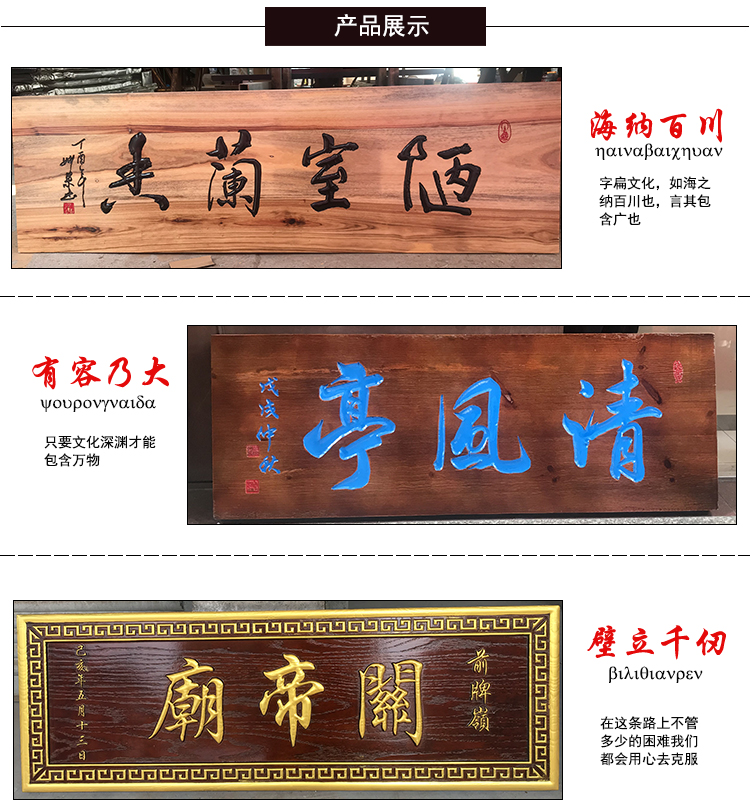 产品展示
陋室蘭香
海纳百川
ηαιναβαιχηυαν
字扁文化，如海之
纳百川也，言其包
含广也
有容乃大
ψουρονγναιδα
只要文化深渊才能
包含万物
清風亭
戊戌仲秋
前牌嶺
關帝廟
己亥年五月十三日
壁立千仞
βιλιθιανρεν
在这条路上不管
多少的困难我们
都会用心去克服